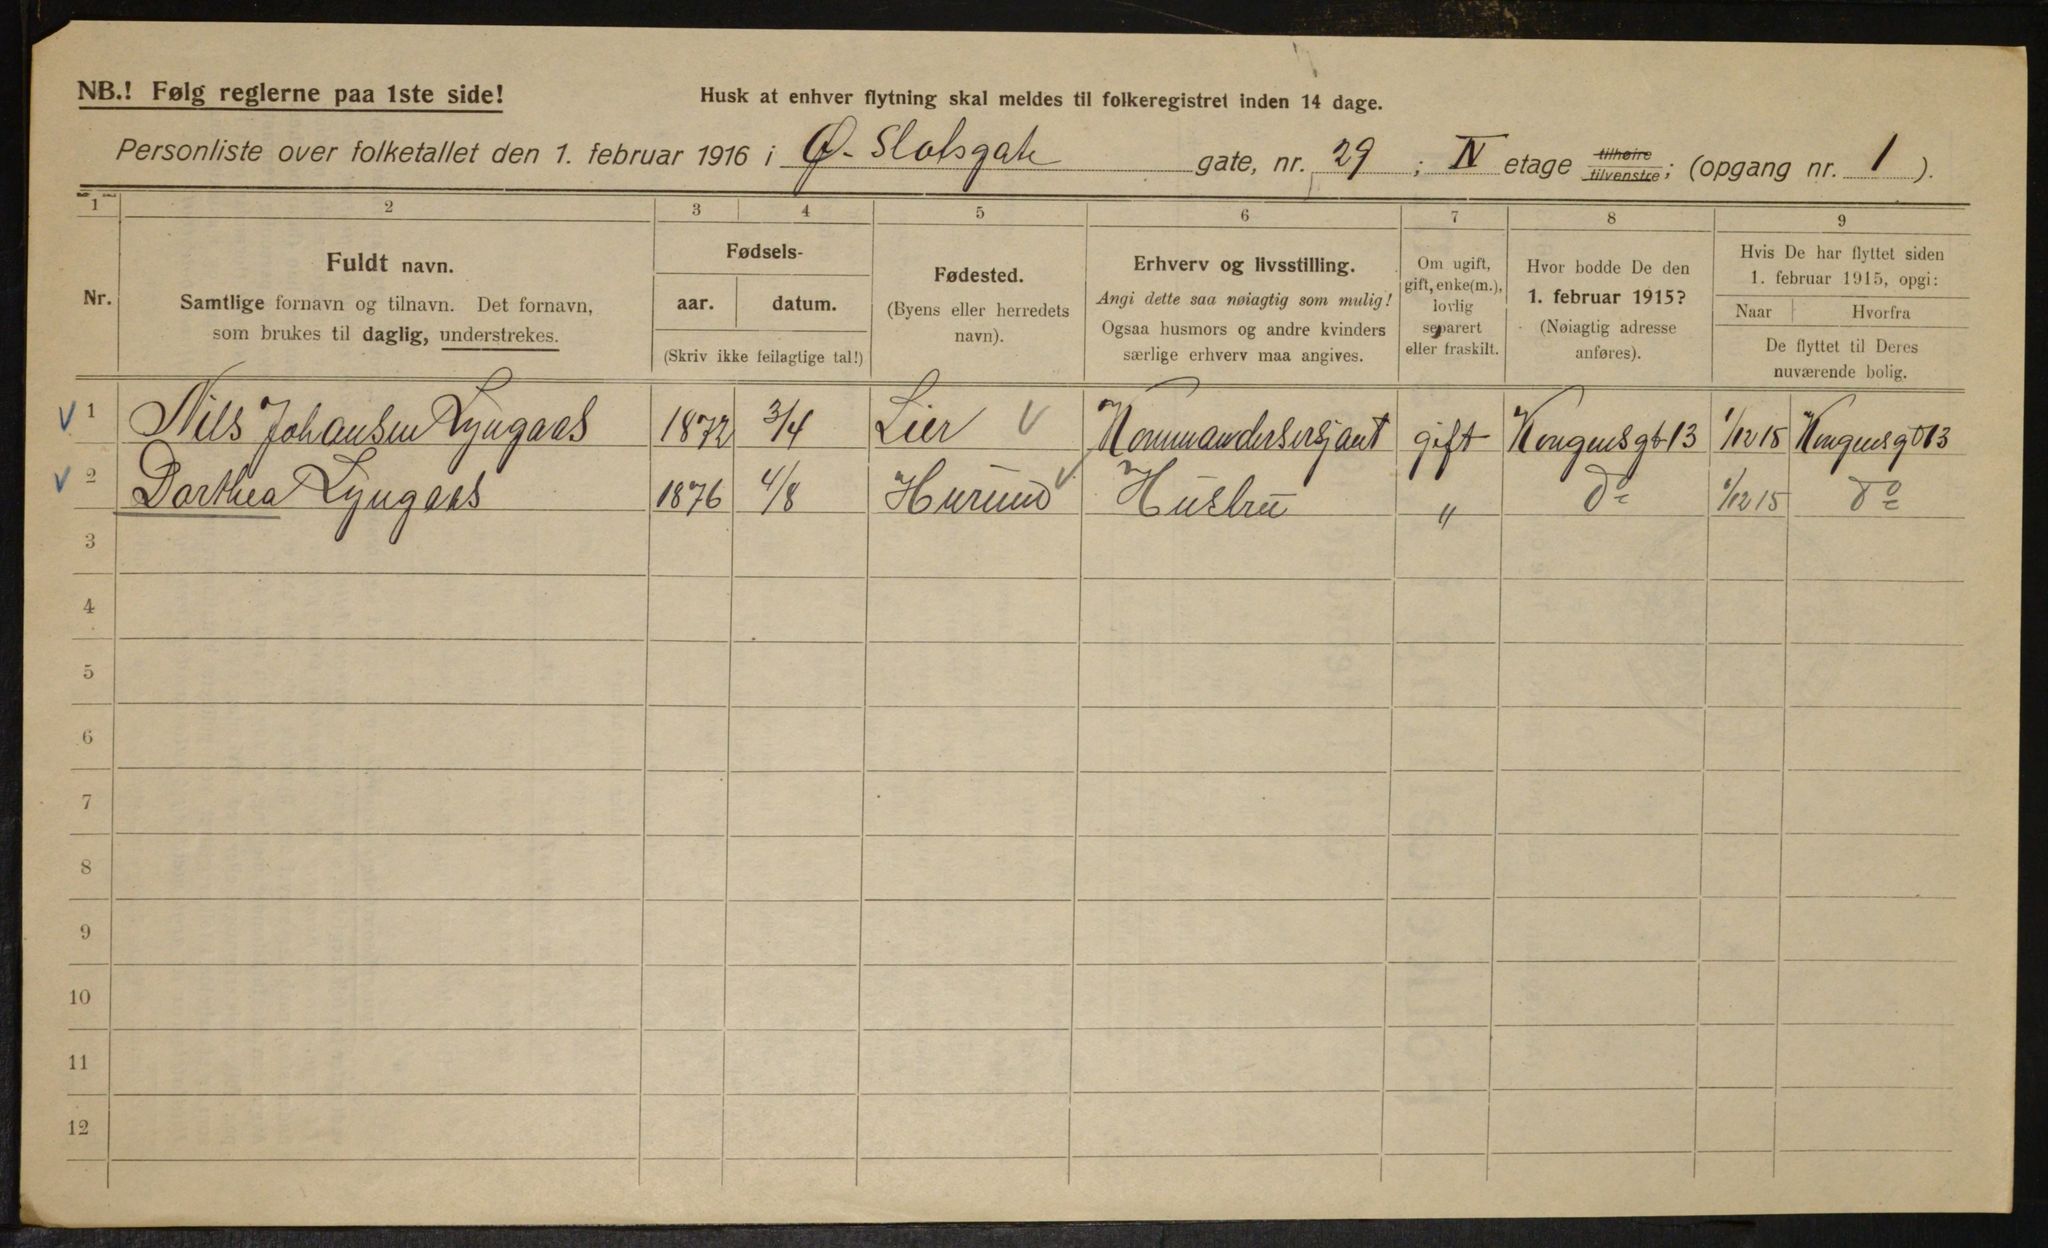 NB.! Følg reglerne paa 1ste side!
Husk at enhver flytning skal meldes til folkeregistret inden 14 dage.
Personliste over folketallet den 1. februar 1916 i Ø. Slotsgate gate, nr. 29 ; IV etage tilhøire tilvenstre; (opgang nr. 1 ).
1 2 3 4 5 6 7 8 9
Nr.
Fuldt navn.
Samtlige fornavn og tilnavn. Det fornavn,
som brukes til daglig, understrekes.
Fødsels-
aar. datum.
(Skriv ikke feilagtige tal!)
Fødested.
(Byens eller herredets
navn).
Erhverv og livsstilling.
Angi dette saa nøiagtig som mulig!
Ogsaa husmors og andre kvinders
særlige erhverv maa angives.
Om ugift,
gift, enke(m.),
lovlig
separert
eller fraskilt.
Hvor bodde De den
1. februar 1915?
(Nøiagtig adresse
anføres).
Hvis De har flyttet siden
1. februar 1915, opgi:
Naar Hvorfra
De flyttet til Deres
nuværende bolig.
V 1 Nils Johansen Lyngaas 1872 3/4 Lier V Kommandersersjant gift Kongensgt 13 1/12 15 Kongensgt 13
V 2 Dorthea Lyngaas 1876 4/8 Hurum V Hustru " do 1/12 15 do
3
4
5
6
7
8
9
10
11
12